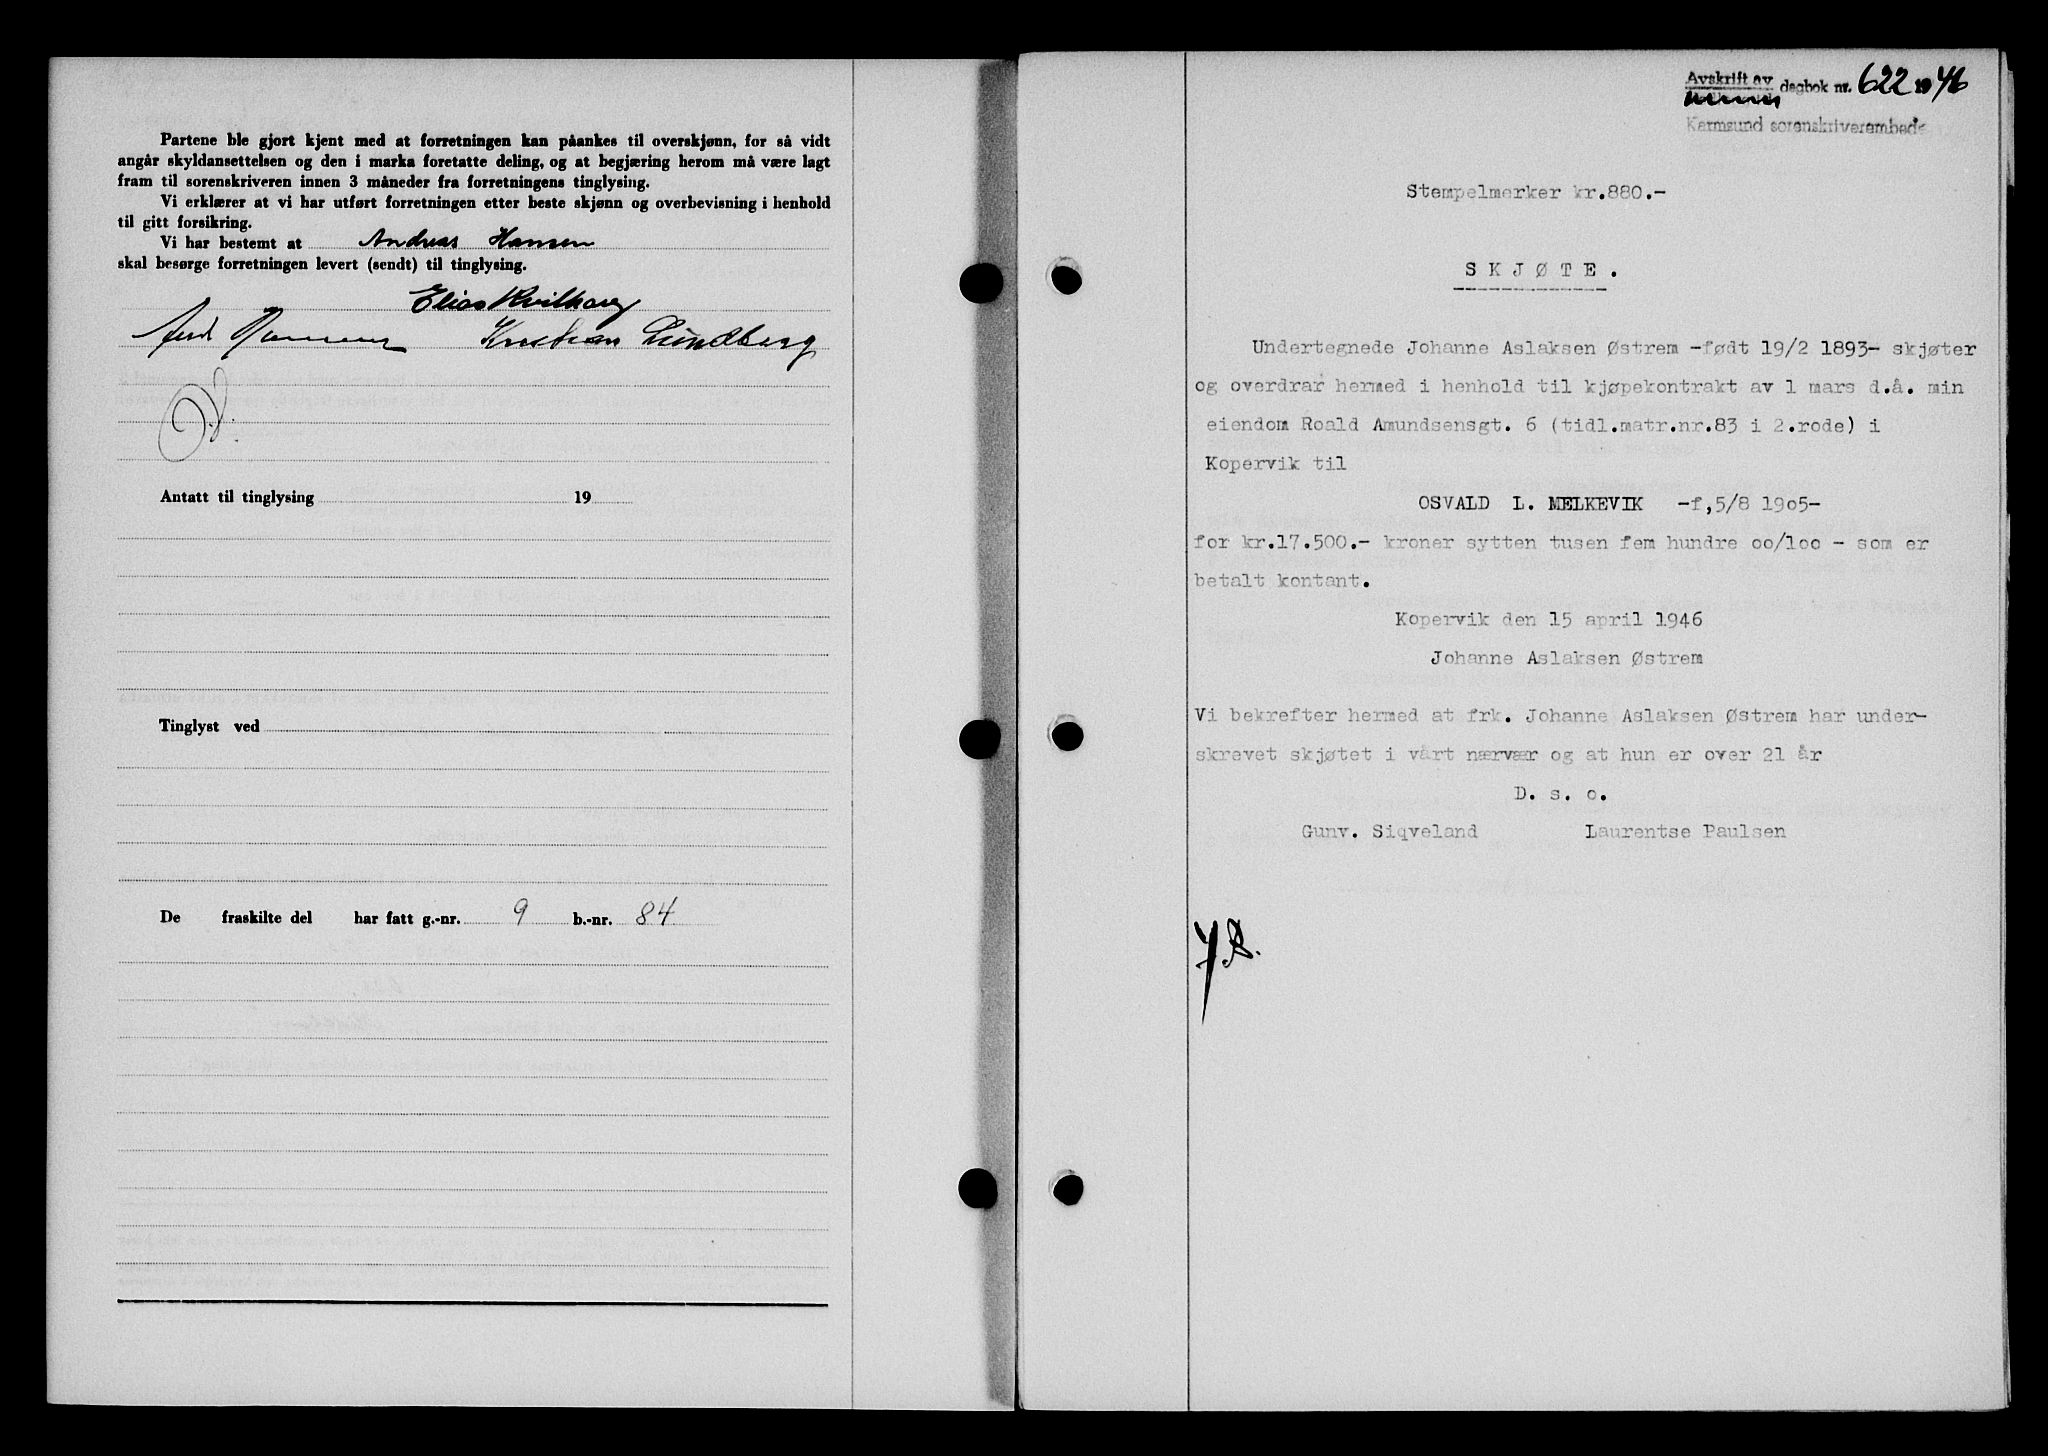 Partene ble gjort kjent med at forretningen kan påankes til overskjønn, for så vidt
angår skyldansettelsen og den i marka foretatte deling, og at begjæring herom må være lagt
fram til sorenskriveren innen 3 måneder fra forretningens tinglysing.
Vi erklærer at vi har utført forretningen etter beste skjønn og overbevisning i henhold
til gitt forsikring.
Vi har bestemt at Andreas Hansen
skal besørge forretningen levert (sendt) til tinglysing.
Elias
Kristian Lundberg
Antatt til tinglysing 19
Tinglyst ved
De fraskilte del har fatt g.-nr. 9 b.-nr. 84
Avskrift av dagbok nr. 622 1946
Karmsund sorenskriverembede
Stempelmerker kr.880.-
SKJØTE.
Undertegnede Johanne Aslaksen Østrem -født 19/2 1893- skjøter
og overdrar hermed i henhold til kjøpekontrakt av 1 mars d.å. min
eiendom Roald Amundsensgt. 6 (tidl.matr.nr.83 i 2.rode) i
Kopervik til
OSVALD L. MELKEVIK -f,5/8 19o5-
for kr.17.500.- kroner sytten tusen fem hundre oo/1oo - som er
betalt kontant.
Kopervik den 15 april 1946
Johanne Aslaksen Østrem
Vi bekrefter hermed at frk. Johanne Aslaksen Østrem har under-
skrevet skjøtet i vårt nærvær og at hun er over 21 år
D. s. o.
Gunv. Siqveland Laurentse Paulsen